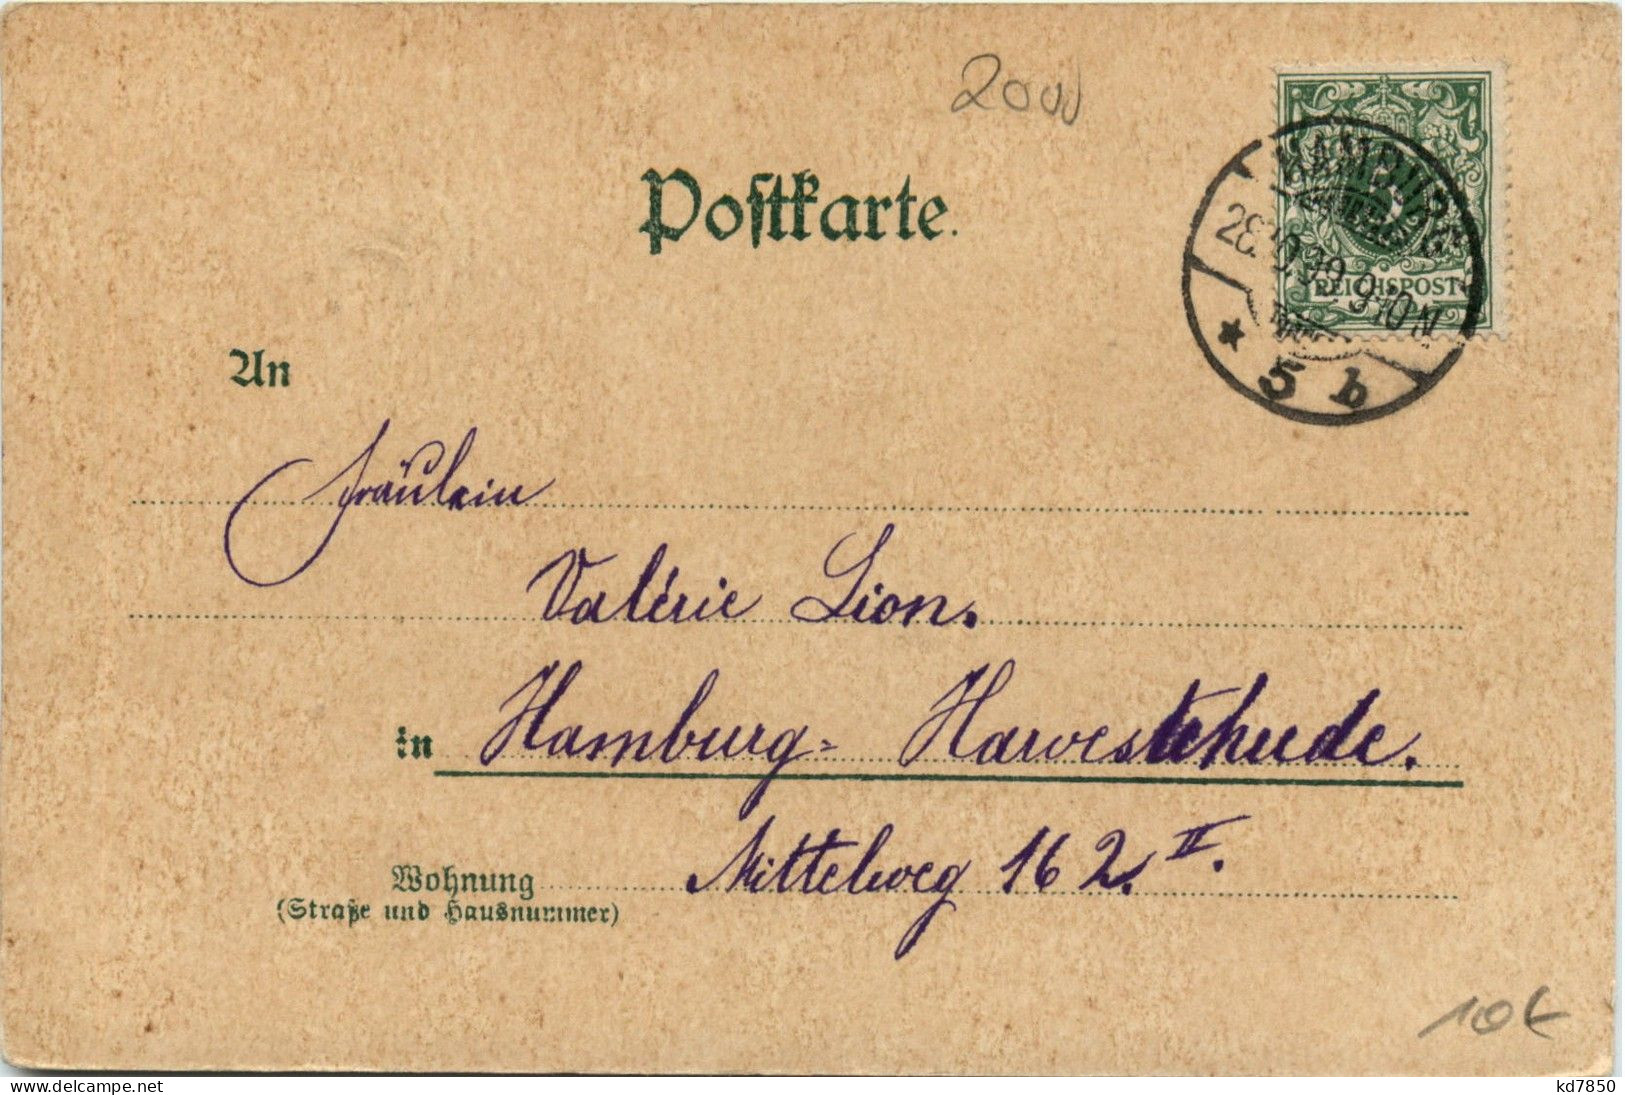 2000
Postkarte.
REICHSPOST
HAMBURG
28.10.99 9-10 N
* 5 b
An
Fräulein
Valérie Lion.
in Hamburg-Harvestehude.
Mittelweg 162. II.
Wohnung
(Straße und Hausnummer)
10€
www.delcampe.net
kd7850